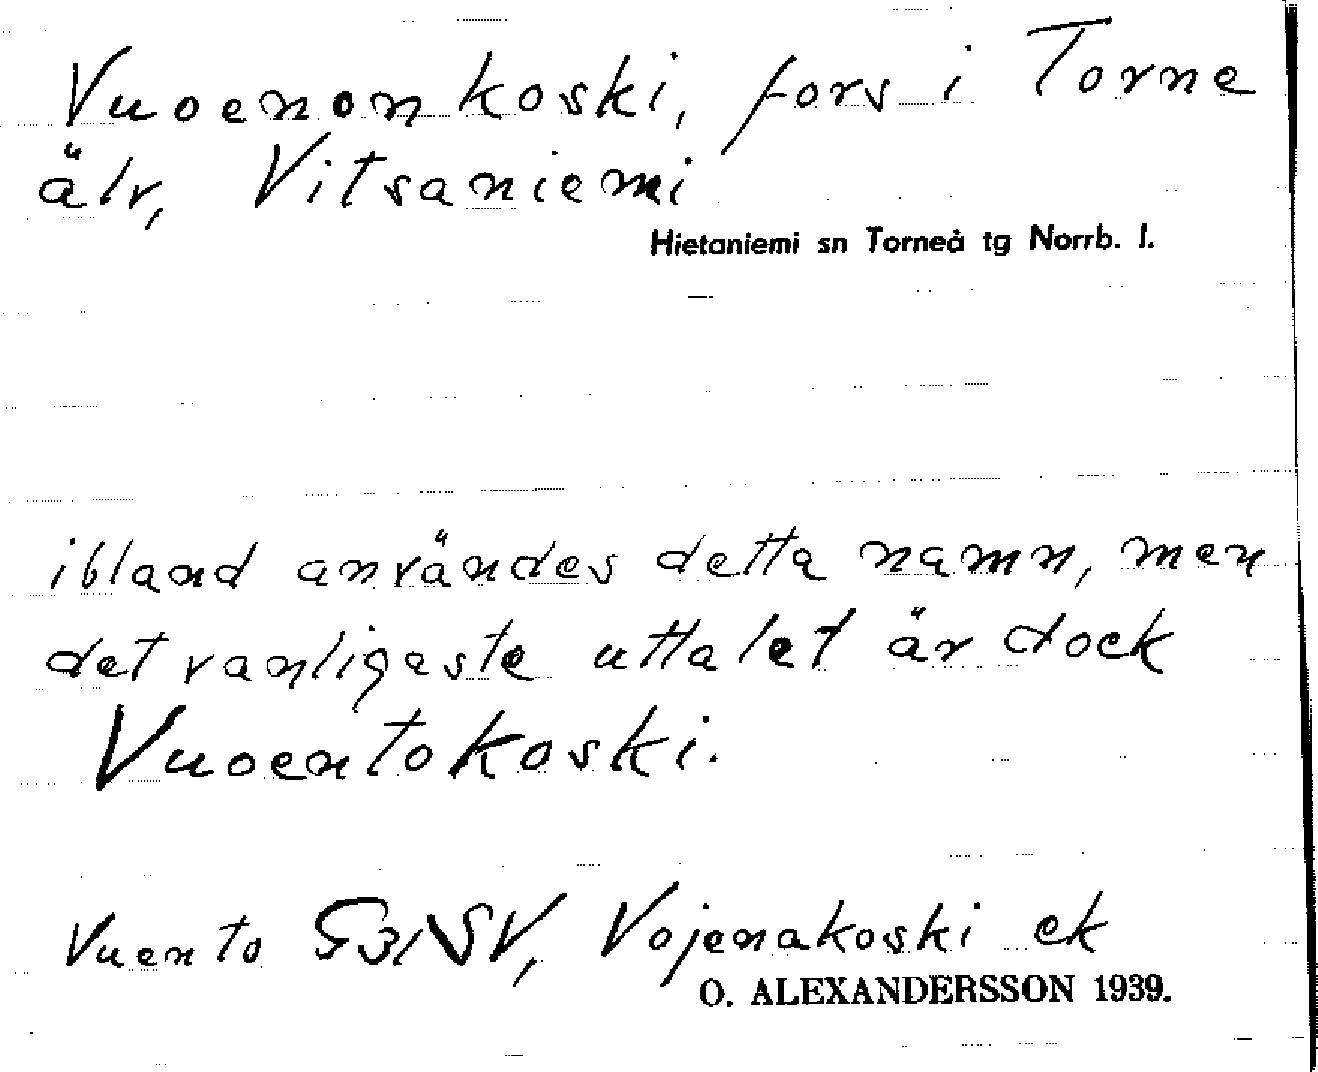 Vuoenonkoski, fors i Torne
älv, Vitsaniemi
Hietaniemi sn Torneå tg Norrb. l.
ibland användes detta namn, men
det vanligaste uttalet är dock
Vuoentokoski.
Vuento S31SV, Vojenakoski ek
O. ALEXANDERSSON 1939.